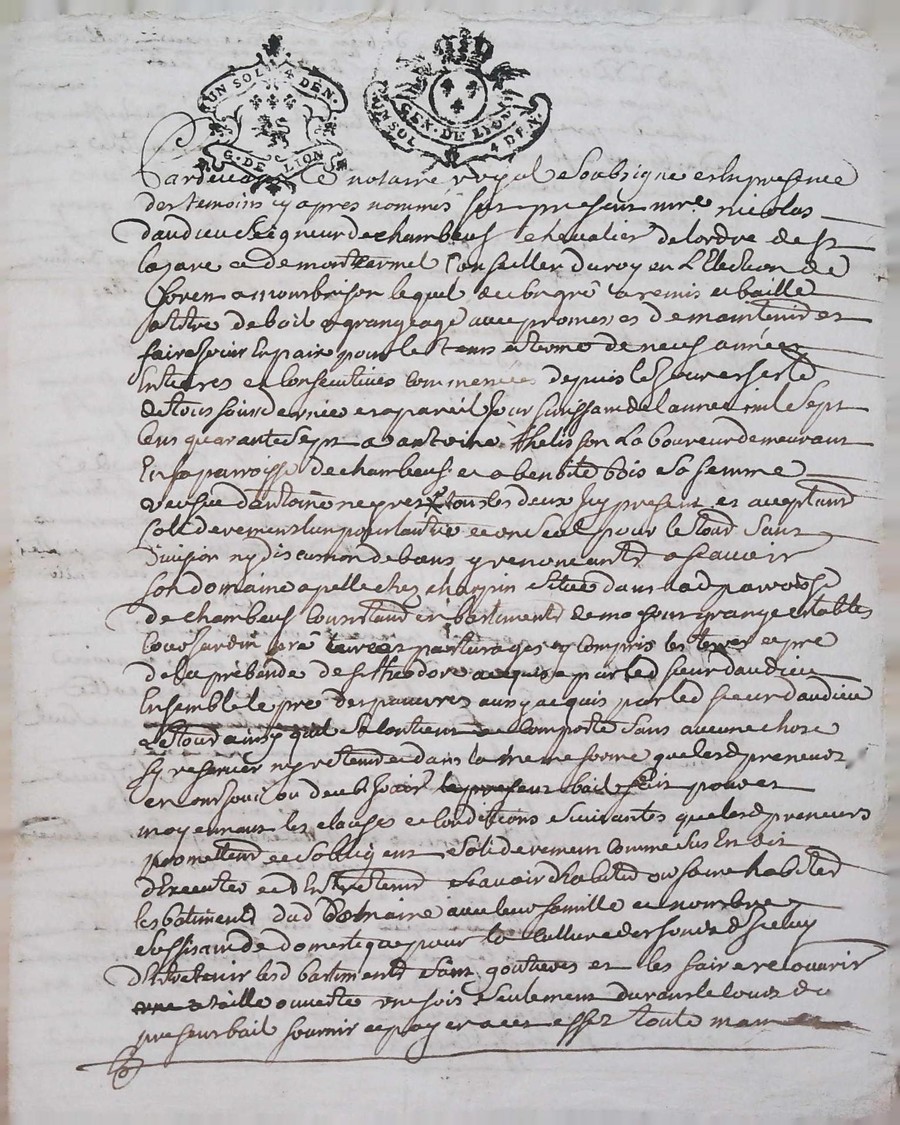 UN SOL 4 DEN.
G. DE LION
GEN. DE LION
UN SOL 4 DEN.
Pardevant Le notaire royal soubsigné et en presence
des temoins cy apres nommés fut present mre nicolas
daudieu seigneur de chambeuf chevalier de lordre de st
lazare et de montcarmel Conseiller du roy en L'Election de
forest a montbrison lequel de bongré a remis et baillé
a titre de bail et grangeage avec promesses de maintenir et
faire jouir En paix pour le tems et terme de neuf années
Entieres et Consecutives commencées depuis le jour et feste
de tous saint dernier et a pareil jour finissant de l'année mil sept
Cens quarante sept a antoine thelisson Laboureur demeurant
En la parroisse de chambeuf et a benoite bois sa femme
veufve d'antoine negre tous les deux Icy present et acceptant
soliderement l'un pour l'autre et un seul pour le tout sans
Division ny discussion de biens y renonceants a scavoir
son domaine apellé chez charpin situé dans lad parroisse
de chambeuf Consistant en bastiments de maison grange Estables
Cour jardin pré terres pasturages y compris les terres et pré
de la prebende de st theodore acquise par led sieur daudieu
Ensemble le pré des pauvres aussy acquis par led sieur daudieu
Le tout ainsy quil se Contient et Comporte sans aucune chose
sy reserver ny retenir et dans la meme forme que lesd preneurs
en ont joui ou deub jouir bail fait
moyennant les clauses et Conditions suivantes que lesd preneurs
promettent et sobligent soliderement Comme sus En dit
d'Executer et d'Entretenir scavoir d'habiter ou faire habiter
les batiments dud Domaine avec leur famille et nombre
suffisant de domestique pour la culture des fonds d'Iceluy
d'Entretenir lesd bastiments sans goutieres et les faire recouvrir
a taille ouverte une fois seulement durant le cours du
present bail fournir et payer a cet effet toute